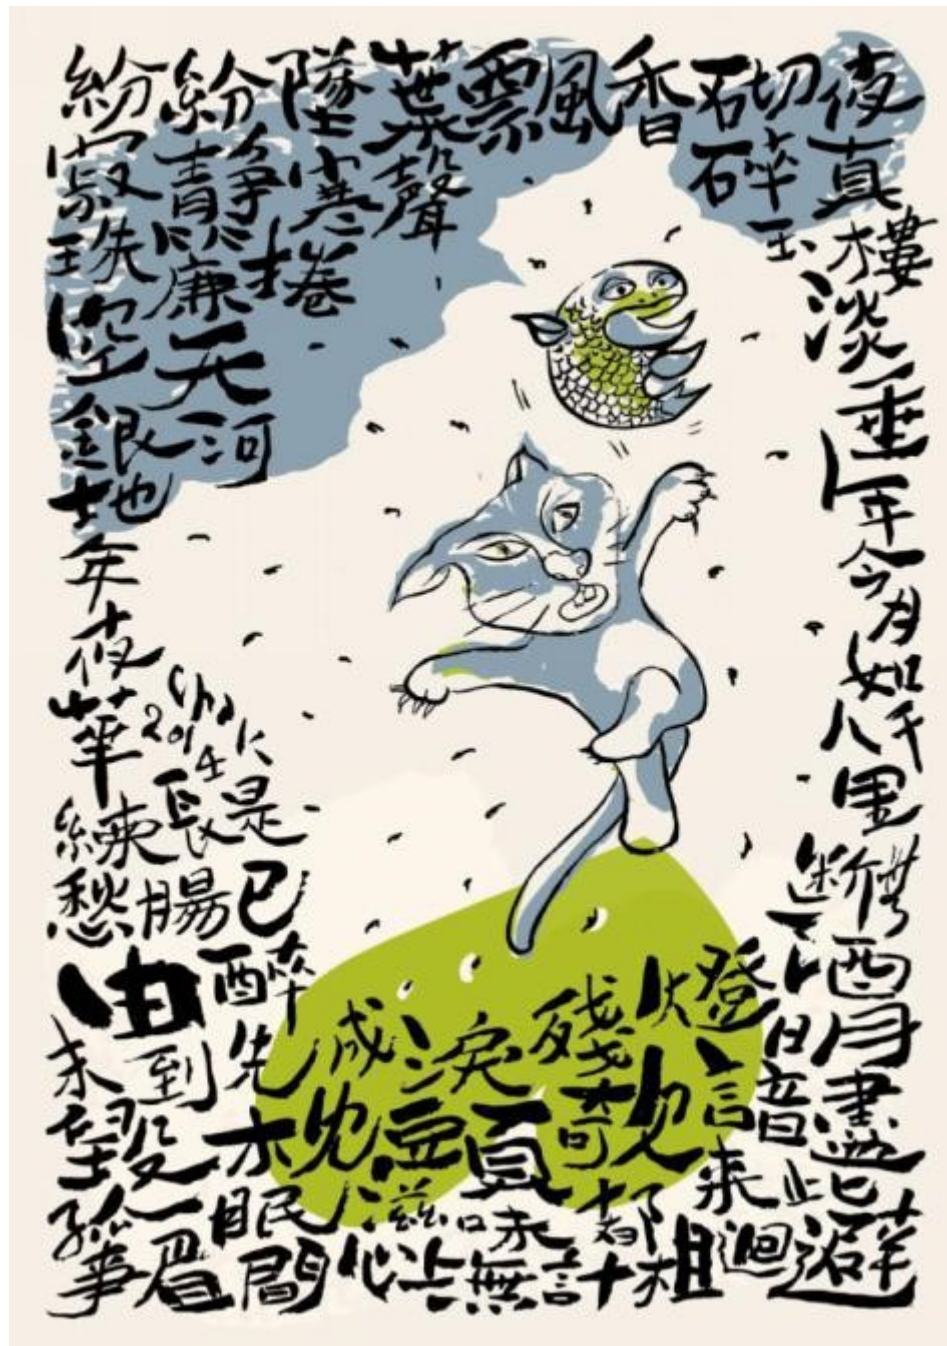 紛紛墜葉飄香砌夜
寂靜寒聲碎真
珠簾捲玉樓
空天淡
銀河垂
地年
年今
夜月
華如
2014
練長是人千里
愁腸已斷無
由醉酒
未到先成淚殘燈明
枕頭欹諳盡
孤眠滋味都來此
事眉間心上無計相迴避